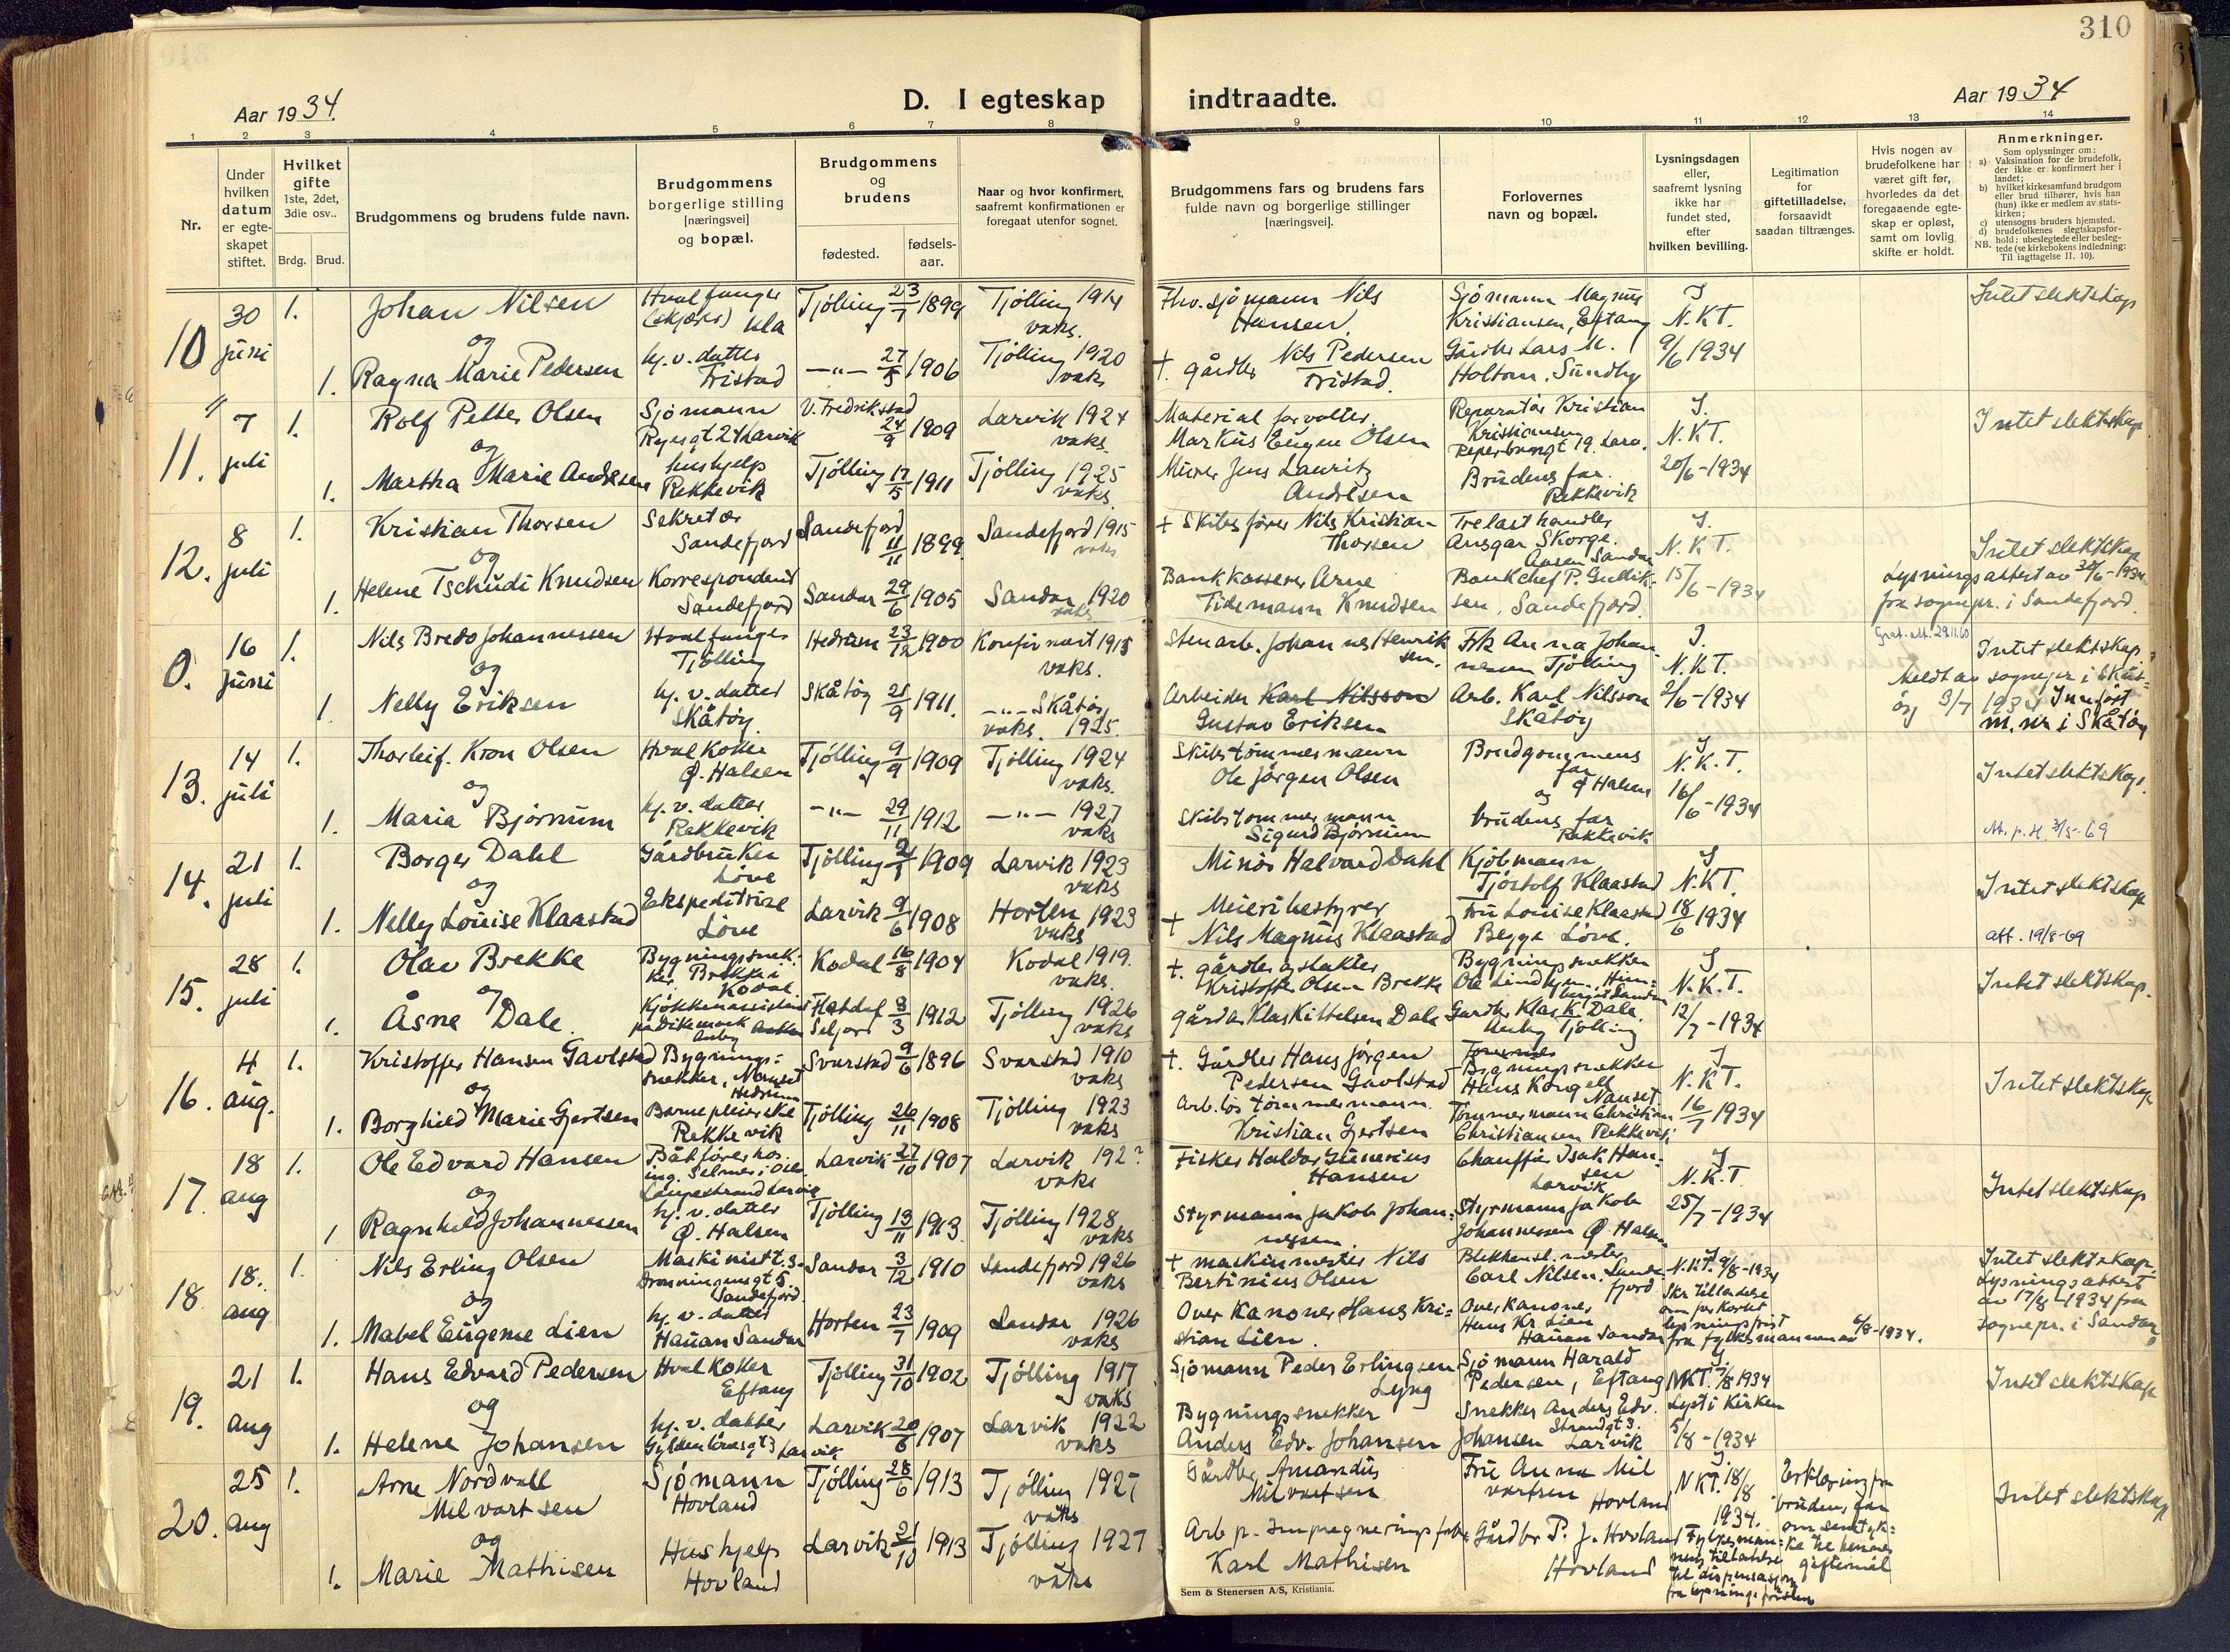 310
Aar 1934.
D. I egteskap indtraadte.
Aar 1934
1 2 3 4 5 6 7 8 9 10 11 12 13 14
Nr.
Under hvilken datum er egteskapet stiftet.
Hvilket gifte 1ste, 2det, 3die osv..
Brdg. Brud.
Brudgommens og brudens fulde navn.
Brudgommens borgerlige stilling [næringsvei] og bopæl.
Brudgommens og brudens
fødested.
fødselsaar.
Naar og hvor konfirmert, saafremt konfirmationen er foregaat utenfor sognet.
Brudgommens fars og brudens fars fulde navn og borgerlige stillinger [næringsvei].
Forlovernes navn og bopæl.
Lysningsdagen eller, saafremt lysning ikke har fundet sted, efter hvilken bevilling.
Legitimation for giftetilladelse, forsaavidt saadan tiltrænges.
Hvis nogen av brudefolkene har været gift før, hvorledes da det foregaaende egteskap er opløst, samt om lovlig skifte er holdt.
Anmerkninger.
Som oplysninger om:
a) Vaksination for de brudefolk, der ikke er konfirmert her i landet;
b) hvilket kirkesamfund brudgom eller brud tilhører, hvis han (hun) ikke er medlem av statskirken;
c) utensogns bruders hjemsted.
d) brudefolkenes slegtskapsforhold: ubeslegtede eller beslegtede (se kirkebokens indledning:
NB. Til iagttagelse II. 10).
10
30 juni
1.
Johan Nilsen
og
1. Ragna Marie Pedersen
Hvalfanger
(skjærer) Ula
hj. v. datter
Tristad
Tjølling 23/7 1899
—"— 27/5 1906
Tjølling 1914
vaks.
Tjølling 1920
vaks
Fhv. sjømann Nils
Hansen.
+ gårdbr Nils Pedersen
Tristad.
Sjømann Magnus
Kristiansen, Eftang
Gårdbr Lars M.
Holtom. Sundby
J
N.K.T.
9/6 1934
Intet slektskap
11.
7 juli
1.
Rolf Petter Olsen
og
1. Martha Marie Andresen
Sjømann
Ryesgt 24 Larvik
hushjelp
Rekkevik
V. Fredrikstad
24/9 1909
Tjølling 17/5 1911
Larvik 1924
vaks.
Tjølling 1925
vaks.
Materialforvalter
Markus Eugen Olsen
Murer Jens Lauritz
Andresen
Reparatør Kristian
Kristiansen
Reperbangt 19. Larv.
Brudens far.
Rekkevik
J.
N.K.T.
20/6 - 1934
Intet slektskap
12.
8 juli
1.
Kristian Thorsen
og
1. Helene Tschudi Knudsen
Sekretær
Sandefjord
Korrespondent
Sandefjord
Sandefjord
11/11 1899
Sandar 29/6 1905
Sandefjord 1915
vaks.
Sandar 1920
vaks
+ Skibsfører Nils Kristian
Thorsen
Bankkasserer Arne
Tidemann Knudsen
Trelasthandler
Ansgar Skorge.
Aasen Sandar
Bankchef P. Gullik-
sen, Sandefjord.
J.
N.K.T.
15/6 - 1934
Intet slektskap
Lysningsattest av 30/6 - 1934
fra sognepr. i Sandefjord.
0.
16 juni
1.
Nils Bredo Johannessen
og
1 Nelly Eriksen
Hvalfanger
Tjølling
hj. v. datter
Skåtøy
Hedrum 23/12 1900
Skåtøy 21/9 1911.
Konfirmert 1915
vaks.
—"— Skåtøy
vaks. 1925.
Stenarb. Johannes Henrik
sen.
Arbeider Karl Nilsson
Gustav Eriksen
Frk Anna Johan-
nessen Tjølling
Arb. Karl Nilsson
Skåtøy
J.
N.K.T.
2/6 - 1934
Grat. att. 29.11.60
Intet slektskap
Meldt av sognepr i Skåt-
øy 3/7 1934 Innført
m. nr i Skåtøy
13.
14 juli
1.
Thorleif Kron Olsen
og
1. Maria Bjørnum
Hvalkoker
Ø. Halsen
hj. v. datter
Rekkevik
Tjølling 9/9 1909
—"— 29/11 1912
Tjølling 1924
vaks.
—"— 1927
vaks
Skibstømmermann
Ole Jørgen Olsen
Skibstømmermann
Sigurd Bjørnum
Brudgommens
far
og Ø Halsen
brudens far
Rekkevik
J
N.K.T.
16/6 - 1934
Intet slektskap.
Att. p. H. 3/5-69
14.
21 juli
1.
Borger Dahl
og
1. Nelly Louise Klaastad
Gårdbruker
Løve
Ekspeditrise
Løve
Tjølling 2/1 1909
Larvik 9/6 1908
Larvik 1923
vaks
Horten 1923
vaks
Minør Halvard Dahl
+ Meieribestyrer
Nils Magnus Klaastad
Kjøbmann
Tjostolf Klaastad
Fru Louise Klaastad
Begge Løve.
J
N.K.T.
18/6 1934
Intet slektskap
att. 19/8-69
15.
28 juli
1.
Olav Brekke
og
1. Åsne Dale.
Bygningssnek-
ker Brekke i
Kodal
Kjøkkenassistent
på Dikemark Asker
Auby
Kodal 16/8 1904
Flatdal
Seljord 3/3 1912
Kodal 1919.
vaks.
Tjølling 1926
vaks
+. gårdbr og slakter
Kristoffer Olsen Brekke
gårdbr Klas Kittelsen Dale
Bygningssnekker
Gardbr Klas K. Dale.
Auby Tjølling
J
N.K.T.
12/7 - 1934
Intet slektskap.
16.
4 aug.
1.
Kristoffer Hansen Gavlstad
og
1. Borghild Marie Gjertsen
Bygnings-
snekker, Nanset
Hedrum
Barnepleierske
Rekkevik
Svarstad 9/6 1896
Tjølling 26/11 1908
Svarstad 1910
vaks
Tjølling 1923
vaks
+. Gårdbr Hans Jørgen
Pedersen Gavlstad
Arb.løs tømmermann.
Kristian Gjertsen
Bygningssnekker
Hans Kongell
Nanset.
Tømmermann Christian
Christiansen Rekkevik
J
N.K.T.
16/7 1934
Intet slektskap
17.
18 aug
1.
Ole Edvard Hansen
og
1 Ragnhild Johannessen
Båtfører hos
ing. Selmer i Oslo
Langestrand Larvik
hj. v. datter
Ø. Halsen
Larvik 27/10 1907
Tjølling 13/11 1913.
Larvik 192?
vaks
Tjølling 1928
vaks
Fisker Haldor Gunerius
Hansen
Styrmann Jakob Johan-
nessen.
Chauffør Isak Han-
sen
Larvik
Styrmann Jakob
Johannessen Ø. Halsen
J
N.K.T.
25/7 - 1934
Intet slektskap
18
18. aug
1.
Nils Erling Olsen
og
1. Mabel Eugenie Lien
Maskinist t.s.
Dronningensgt 5.
Sandefjord.
hj. v. datter
Hauan Sandar
Sandar 3/12 1910
Horten 23/7 1909
Sandefjord 1926
vaks
Sandar 1926
vaks
+ maskinmester Nils
Bertinius Olsen
Over Kanoner Hans Kri-
stian Lien.
Blekkensl. mester
Carl Nilsen. Sande-
fjord
Overkanoner
Hans Kr Lien
Hauan Sandar
J
N.K.T. 9/8 - 1934
Skr tilladelse
om forkortet
lysningsfrist
fra fylkesmannen av 6/8 - 1934.
Intet slektskap.
Lysningsattest
av 17/8 - 1934 fra
sognepr. i Sandar
19.
21 aug
1.
Hans Edvard Pedersen
og
1. Helene Johansen
Hvalkoker
Eftang
hj. v. datter
Gyldenløvesgt 3 Larvik
Tjølling 31/10 1902
Larvik 20/6 1907
Tjølling 1917
vaks
Larvik 1922
vaks
Sjømann Peder Erlingsen
Lyng
Bygningssnekker
Anders Edv. Johansen
Sjømann Harald
Pedersen, Eftang
Snekker Anders Edv.
Strandgt 3.
Johansen Larvik
J
NKT. 7/8 1934
Lyst i Kirken
5/8 - 1934
Intet slektskap
20.
25 aug
1.
Arne Nordvall
Milvartsen
og
1. Marie Mathisen
Sjømann
Hovland
Hushjelp
Hovland
Tjølling 28/6 1913
Larvik 21/10 1913
Tjølling 1927
vaks
Tjølling 1927
vaks
Gårdbr. Amandus
Milvartsen
Arb p. Impregneringsfabr.
Karl Mathisen
Fru Anna Mil
vartsen
Hovland
Gårdbr P. J. Hovland
Hovland
J.
NKT. 18/8
1934.
Fylkesman-
nens tilladelse
til dispensasjon
fra lysningsfristen
Erklæring fra
brudens far
om samtyk-
ke til hennes
giftermål
Intet slektskap
Sem & Stenersen A/S, Kristiania.